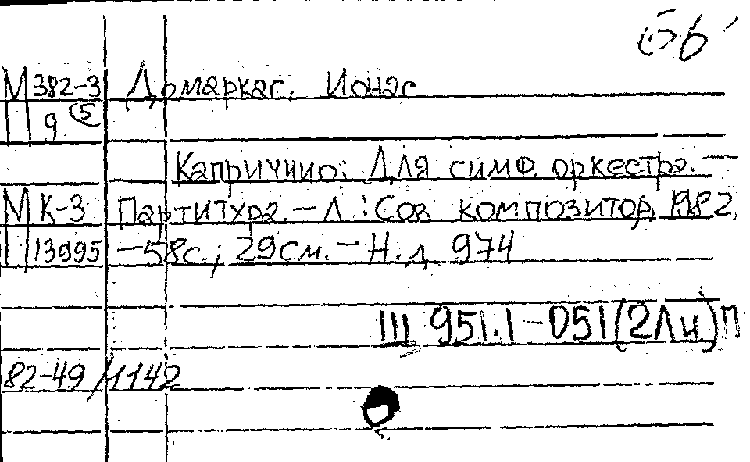 56
М 382-3 Домаркас. Ионас
9 5
Каприччио: Для симф. оркестра. —
М К-3 Партитура. — Л.: Сов композитор, 1982.
13995 — 58с.; 29см. — Н.д. 974
Ш 951.1-051(2Ли)п
82-49/1142